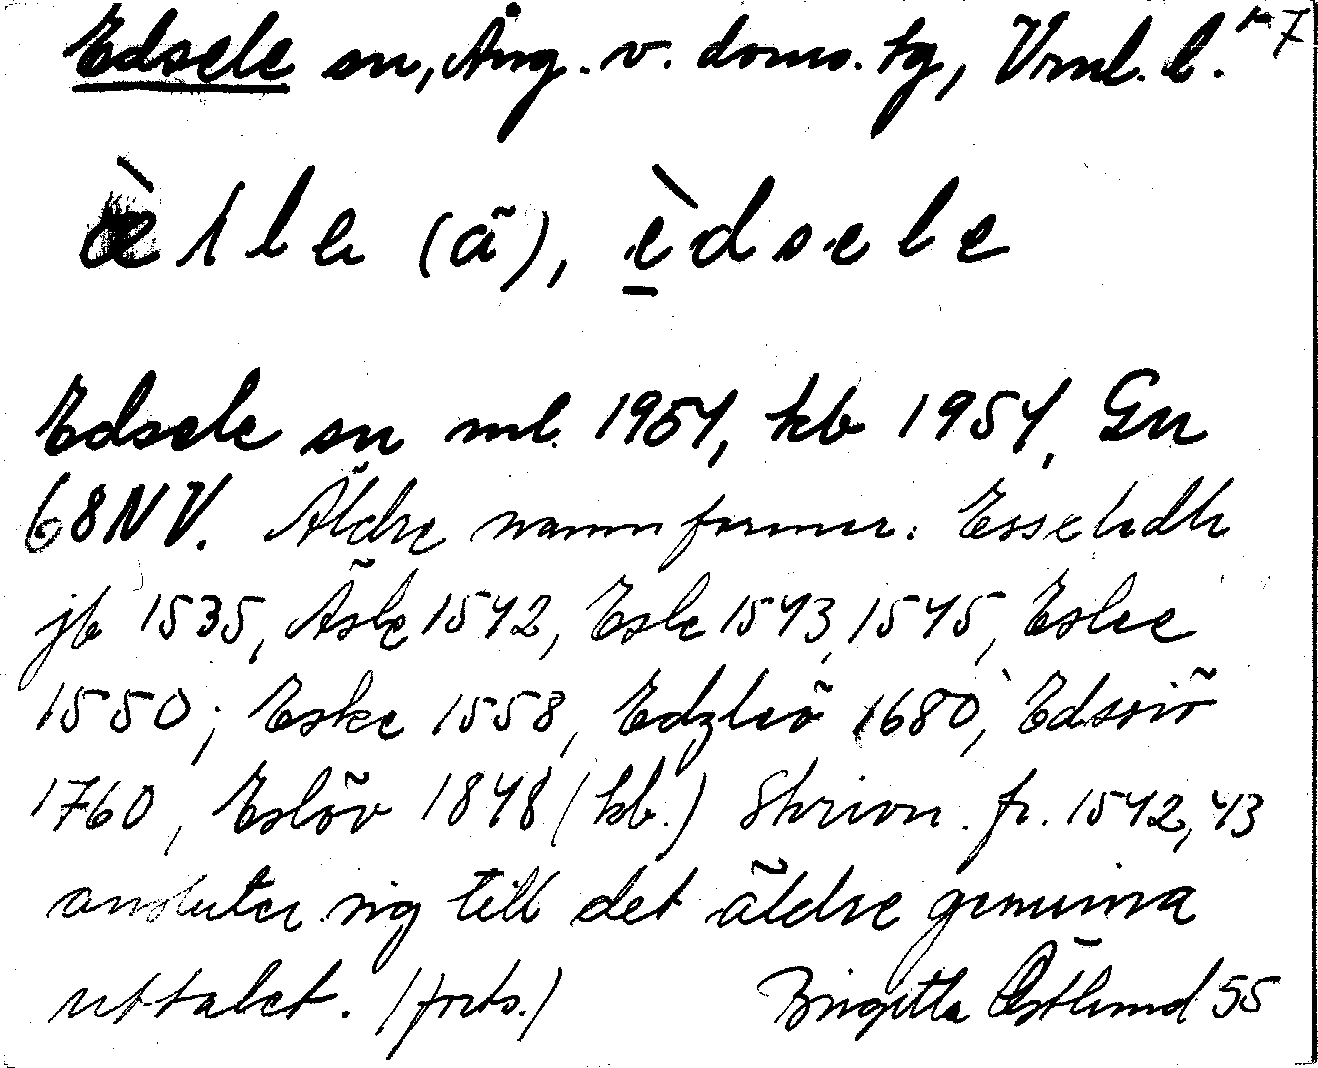 Edsele sn, Ång. v. doms. tg, Vrml. l. 7
(ä), èdsele
Edsele sn ml. 1951, kb 1951, Gn
68NV. Äldre namnformer: Esseledh
jb 1535, Äsle 1542, Esle 1543, 1545, Eslee
1550; Eske 1558, Edzleö 1680, Edsöö
1760, Eslöv 1848 (kb.) Skrivn. fr. 1542, 43
ansluter sig till det äldre genuina
uttalet. (forts.) Birgitta Östlund 55